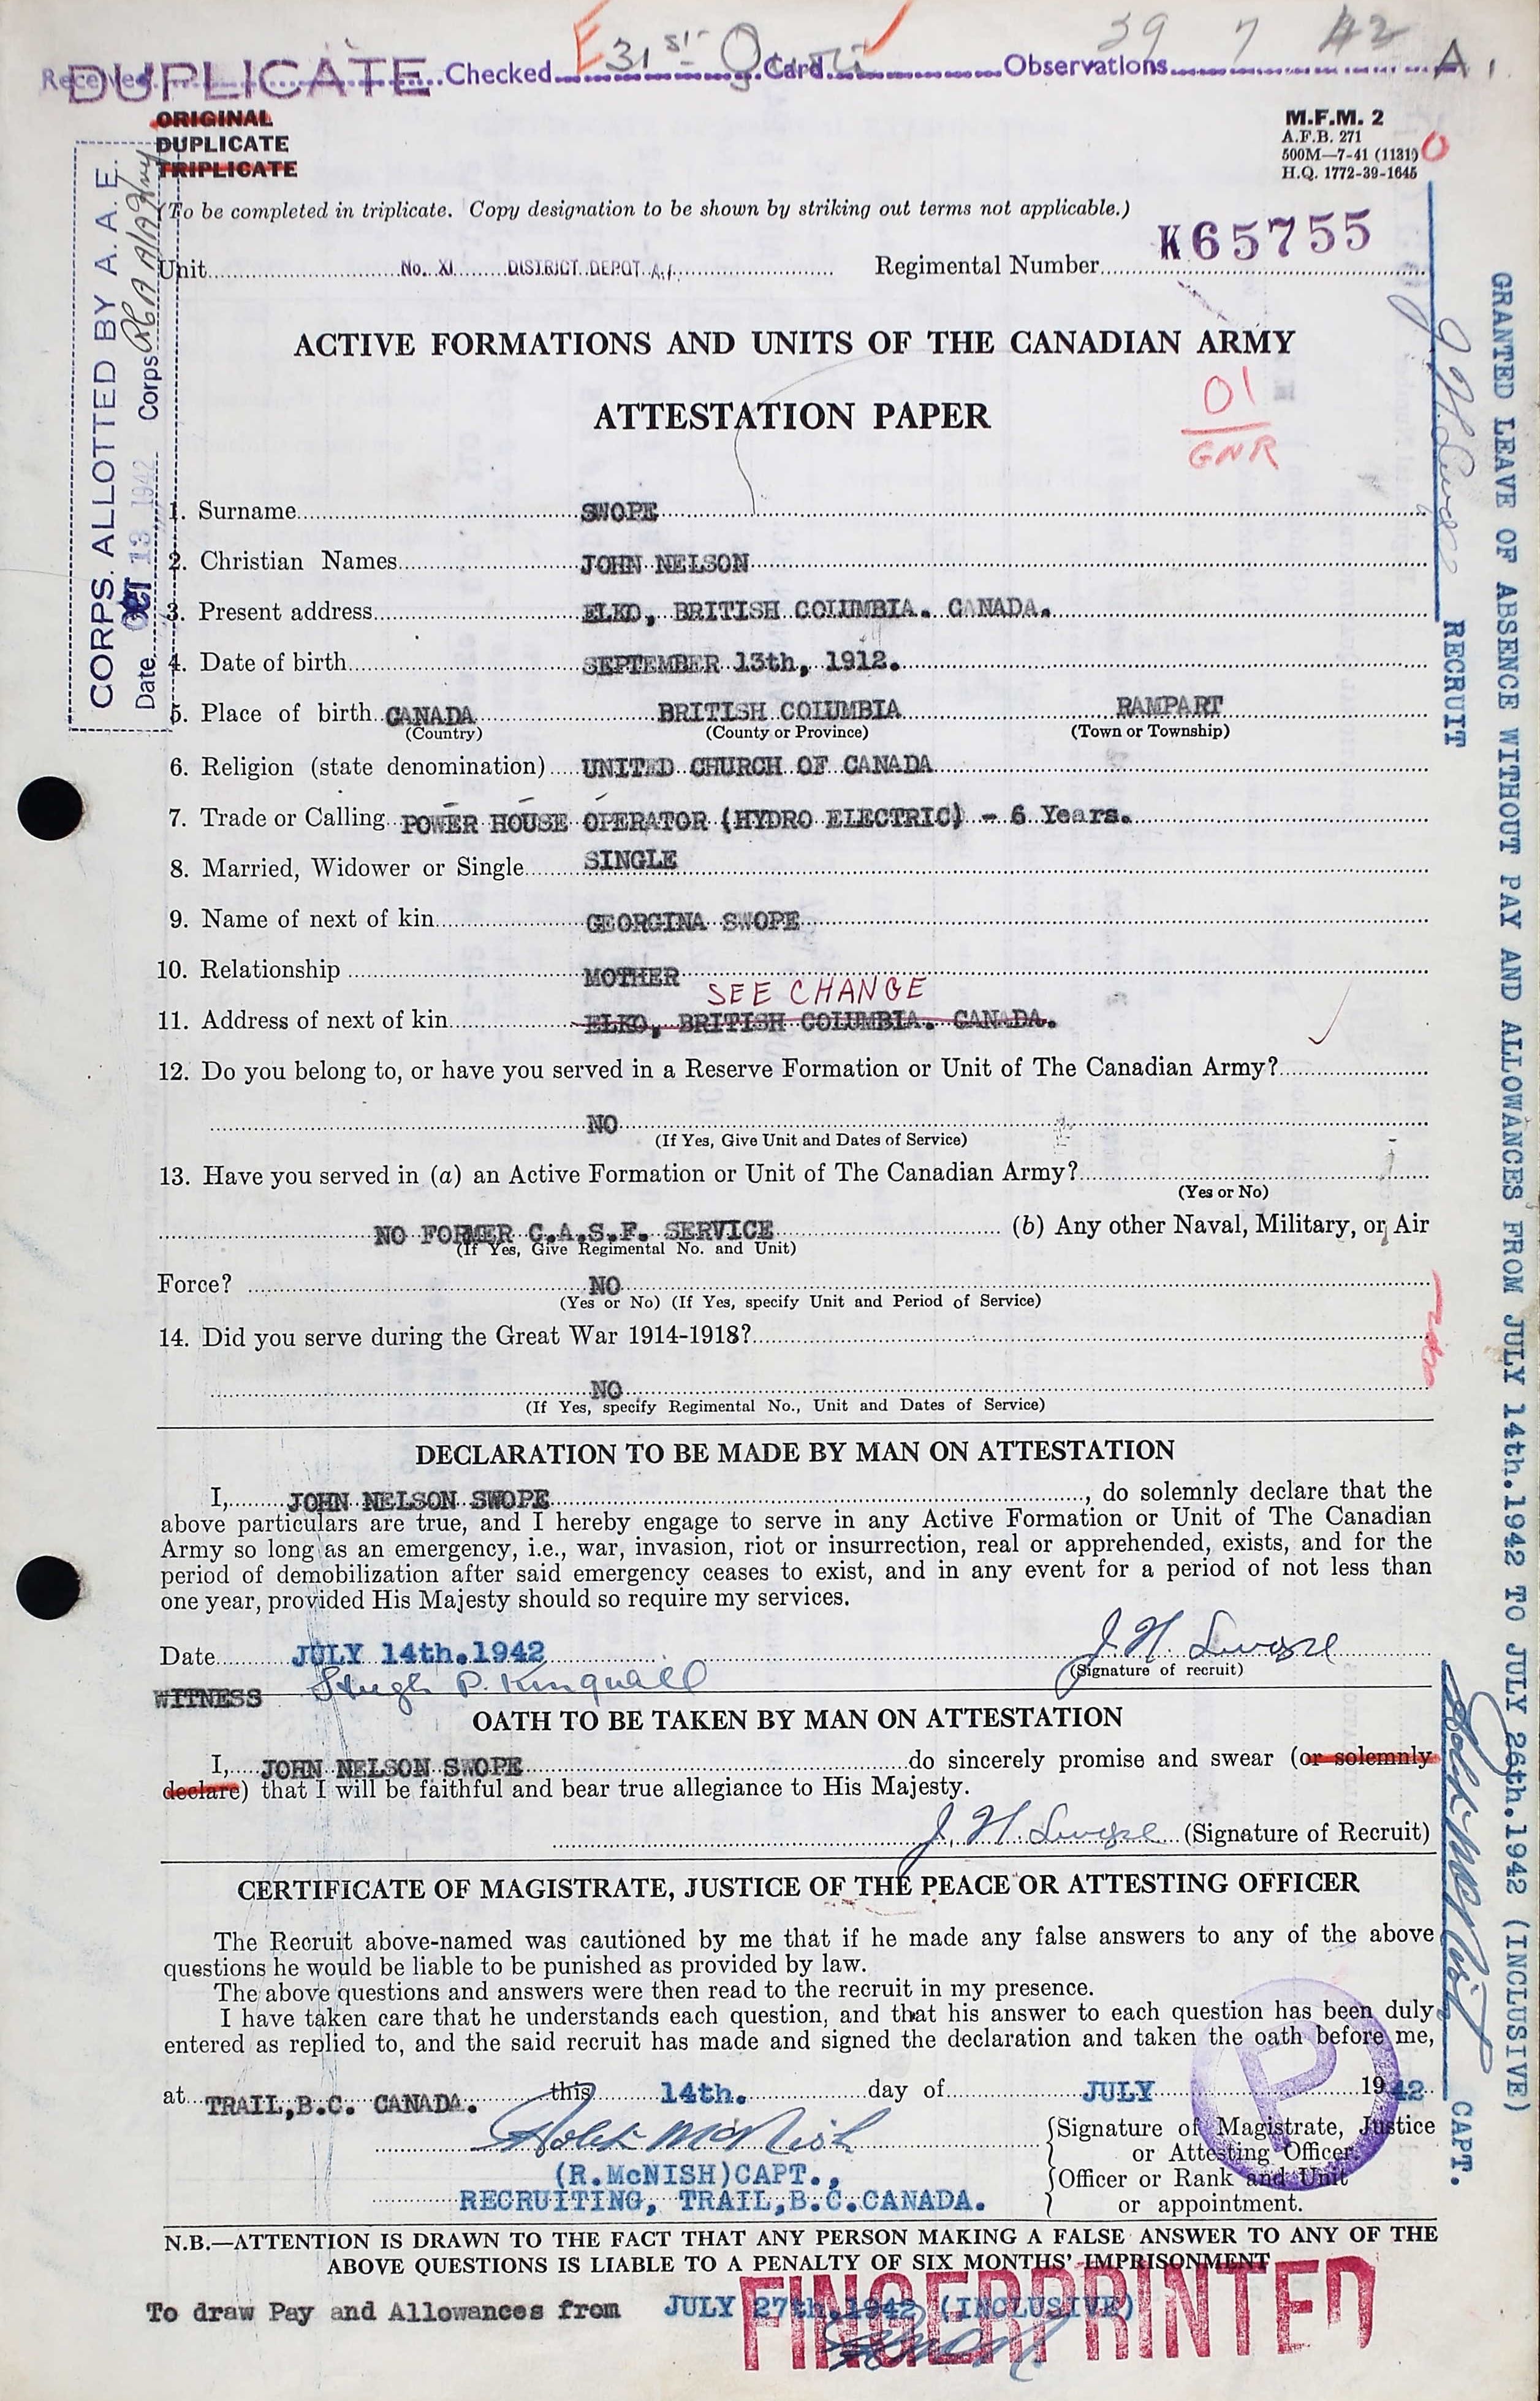 DUPLICATE
Received Checked 31st Card Observations 39 7 42 A
ORIGINAL
DUPLICATE
TRIPLICATE
M.F.M. 2
A.F.B. 271
500M—7-41 (1131)
H.Q. 1772-39-1645
(To be completed in triplicate. Copy designation to be shown by striking out terms not applicable.)
Unit No. XI DISTRICT DEPOT A.1. Regimental Number K65755
ACTIVE FORMATIONS AND UNITS OF THE CANADIAN ARMY
ATTESTATION PAPER
01
GNR
CORPS. ALLOTTED BY A. A. E.
Date OCT 13 1942 Corps
1. Surname SWOPE
2. Christian Names JOHN NELSON
3. Present address ELKO, BRITISH COLUMBIA. CANADA.
4. Date of birth SEPTEMBER 13th, 1912.
5. Place of birth CANADA BRITISH COLUMBIA RAMPART
(Country) (County or Province) (Town or Township)
6. Religion (state denomination) UNITED CHURCH OF CANADA
7. Trade or Calling POWER HOUSE OPERATOR (HYDRO ELECTRIC) - 6 Years.
8. Married, Widower or Single SINGLE
9. Name of next of kin GEORGINA SWOPE
10. Relationship MOTHER
SEE CHANGE
11. Address of next of kin ELKO, BRITISH COLUMBIA. CANADA.
12. Do you belong to, or have you served in a Reserve Formation or Unit of The Canadian Army?
NO
(If Yes, Give Unit and Dates of Service)
13. Have you served in (a) an Active Formation or Unit of The Canadian Army?
(Yes or No)
NO FORMER C.A.S.F. SERVICE (b) Any other Naval, Military, or Air
(If Yes, Give Regimental No. and Unit)
Force? NO
(Yes or No) (If Yes, specify Unit and Period of Service)
14. Did you serve during the Great War 1914-1918?
NO
(If Yes, specify Regimental No., Unit and Dates of Service)
DECLARATION TO BE MADE BY MAN ON ATTESTATION
I, JOHN NELSON SWOPE, do solemnly declare that the
above particulars are true, and I hereby engage to serve in any Active Formation or Unit of The Canadian
Army so long as an emergency, i.e., war, invasion, riot or insurrection, real or apprehended, exists, and for the
period of demobilization after said emergency ceases to exist, and in any event for a period of not less than
one year, provided His Majesty should so require my services.
Date JULY 14th.1942 J. N. Swope
(Signature of recruit)
WITNESS Hugh P.
OATH TO BE TAKEN BY MAN ON ATTESTATION
I, JOHN NELSON SWOPE do sincerely promise and swear (or solemnly
declare) that I will be faithful and bear true allegiance to His Majesty.
J. N. Swope (Signature of Recruit)
CERTIFICATE OF MAGISTRATE, JUSTICE OF THE PEACE OR ATTESTING OFFICER
The Recruit above-named was cautioned by me that if he made any false answers to any of the above
questions he would be liable to be punished as provided by law.
The above questions and answers were then read to the recruit in my presence.
I have taken care that he understands each question, and that his answer to each question has been duly
entered as replied to, and the said recruit has made and signed the declaration and taken the oath before me,
at TRAIL,B.C. CANADA. this 14th. day of JULY 1942
P
Robt McNish {Signature of Magistrate, Justice
or Attesting Officer.
(R.McNISH)CAPT., {Officer or Rank and Unit
RECRUITING, TRAIL,B.C.CANADA. or appointment.
N.B.—ATTENTION IS DRAWN TO THE FACT THAT ANY PERSON MAKING A FALSE ANSWER TO ANY OF THE
ABOVE QUESTIONS IS LIABLE TO A PENALTY OF SIX MONTHS' IMPRISONMENT
To draw Pay and Allowances from JULY 27th.1942 (INCLUSIVE)
FINGERPRINTED
GRANTED LEAVE OF ABSENCE WITHOUT PAY AND ALLOWANCES FROM JULY 14th.1942 TO JULY 26th.1942 (INCLUSIVE)
J. N. Swope RECRUIT
Robt McNish CAPT.